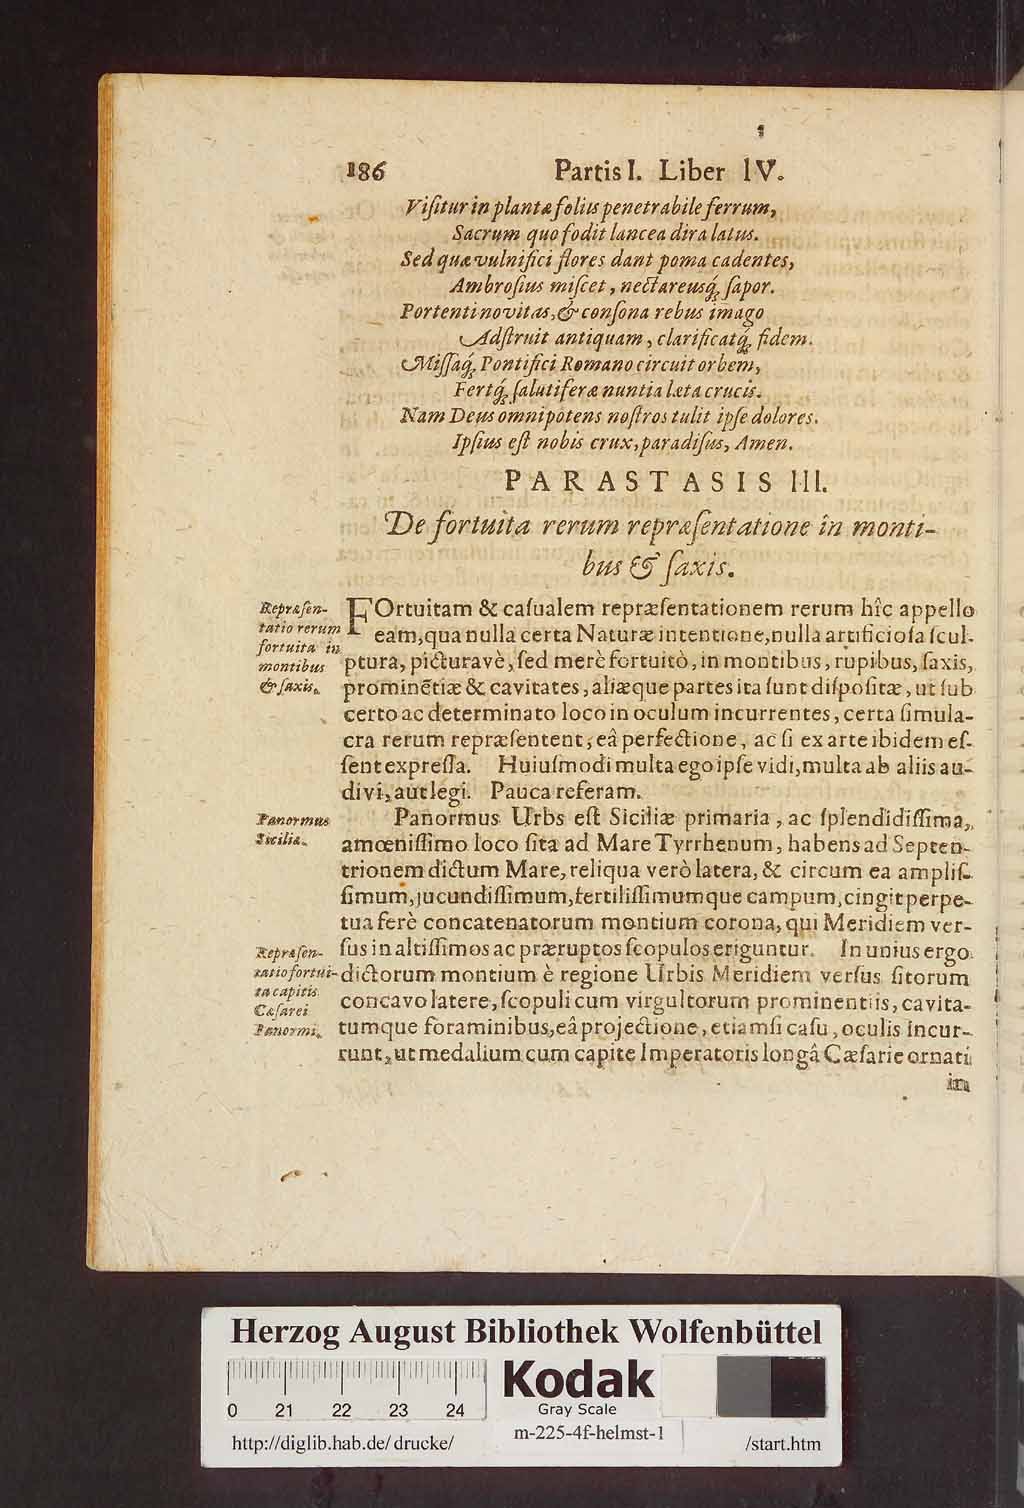 186 Partis I. Liber IV.
Viſitur in plantæ foliis penetrabile ferrum,
Sacrum quo fodit lancea dira latus.
Sed quæ vulnifici flores dant poma cadentes,
Ambroſius miſcet, nectareusq́; ſapor.
Portenti novitas, & conſona rebus imago
Adſtruit antiquam, clarificatq́; fidem.
Miſſaq́; Pontifici Romano circuit orbem,
Fertq́; ſalutiferæ nuntia læta crucis.
Nam Deus omnipotens noſtros tulit ipſe dolores.
Ipſius eſt nobis crux, paradiſus, Amen.
PARASTASIS III.
De fortuita rerum repræſentatione in monti-
bus & ſaxis.
Repræſen-
tatio rerum
fortuita in
montibus
& ſaxis.
FOrtuitam & caſualem repræſentationem rerum hîc appello
eam, qua nulla certa Naturæ intentione, nulla artificioſa ſcul-
ptura, picturavè, ſed merè fortuitò, in montibus, rupibus, ſaxis,
prominẽtiæ & cavitates, aliæque partes ita ſunt diſpoſitæ, ut ſub
certo ac determinato loco in oculum incurrentes, certa ſimula-
cra rerum repræſentent, eâ perfectione, ac ſi ex arte ibidem eſ-
ſent expreſſa. Huiuſmodi multa ego ipſe vidi, multa ab aliis au-
divi, aut legi. Pauca referam.
Panormus
Siciliæ.
Panormus Urbs eſt Siciliæ primaria, ac ſplendidiſſima,
amœniſſimo loco ſita ad Mare Tyrrhenum, habens ad Septen-
trionem dictum Mare, reliqua verò latera, & circum ea ampliſ-
ſimum, jucundiſſimum, fertiliſſimumque campum, cingit perpe-
tua ferè concatenatorum montium corona, qui Meridiem ver-
ſus in altiſſimos ac præruptos ſcopulos eriguntur. In unius ergo
Repræſen-
tatio fortui-
ta capitis
Cæſarei
Panormi.
dictorum montium è regione Urbis Meridiem verſus ſitorum
concavo latere, ſcopuli cum virgultorum prominentiis, cavita-
tumque foraminibus, eâ projectione, etiamſi caſu, oculis incur-
runt, ut medalium cum capite Imperatoris longâ Cæſarie ornati
in
Herzog August Bibliothek Wolfenbüttel
0 21 22 23 24
Kodak
Gray Scale
http://diglib.hab.de/drucke/ m-225-4f-helmst-1 /start.htm